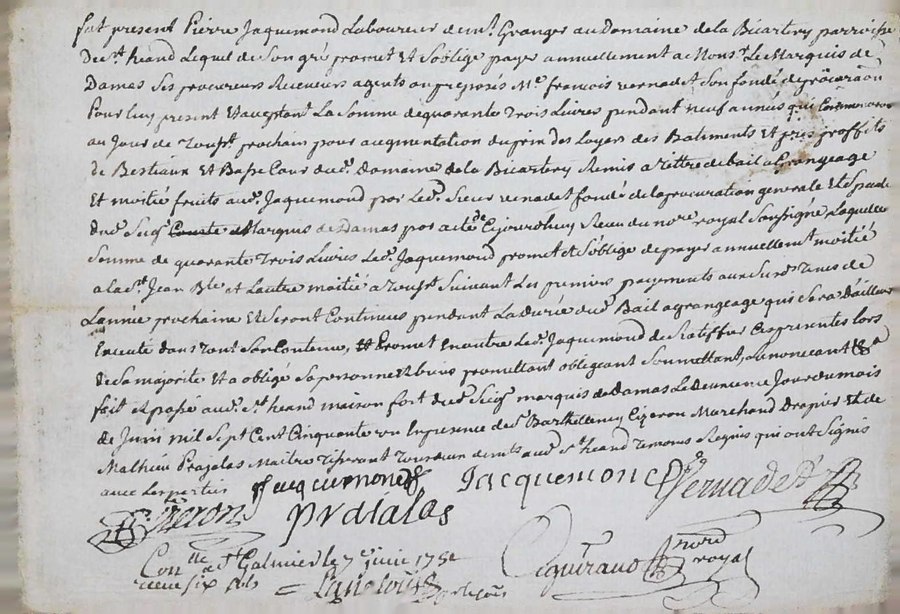 fut present Pierre Jaquemond Laboureur demt Granger au Domaine de la Bicartery parroisse
De st heand Lequel de Son gré promet Et S'oblige payer annuellement a Monsr Le Marquis de
Damas Ses procureurs Receveurs agents ou preposés Me francois vernadet Son fondé de procuraon
Pour luy present Et acceptant La Somme de quarante Trois Livres pendant neuf années qui Commenceront
au Jour de Toussts prochain pour augmentation du prix des Loyers des Batiments Et pris proffits
de Bestiaux Et Basse Cour dudt Domaine de la Bicartery Remis a tittre de bail a Grangeage
Et moitié fruits audt Jaquemond par Ledt Sieur vernadet fondé de la procuration generale Et Spéale
dudt Seigr Comte et Marquis de Damas par acte de Cejourdhuy Receu du nore royal Soussigné Laquelle
Somme de quarante Trois Livres Ledt Jaquemond promet et S'oblige de payer annuellemt moitié
a la st Jean Bte et L'autre moitié a Toussts Suivant Les premiers payements aux Susds Tmes de
L'année prochaine Et Seront Continués pendant La durée dudt Bail a grangeage qui Sera D'ailleurs
Executé dans Tout Son Contenu, Et Promet En outre Ledt Jaquemond de Ratiffier Ces presentes Lors
de Sa majorité Et a obligé Sa personne Et biens promettant obligeant Soumettant, Renonceant &a
fait Et passé audt st heand maison fort dudt Seigr marquis de Damas Le deuxieme Jour du mois
de Juin mil Sept Cent Cinquante un En presence de sr Barthelemy Eyzeron Marchand Drapier Et de
Mathieu Prajalas Maitre Tisserant Tous deux demts audt st heand Temoins Requis qui ont Signés
avec Les parties Jacquemond Jacquemond Vernadet
Eyzeron Pradialas
Conllé a st Galmier le 7e juin 1751
receu six sols nore royal